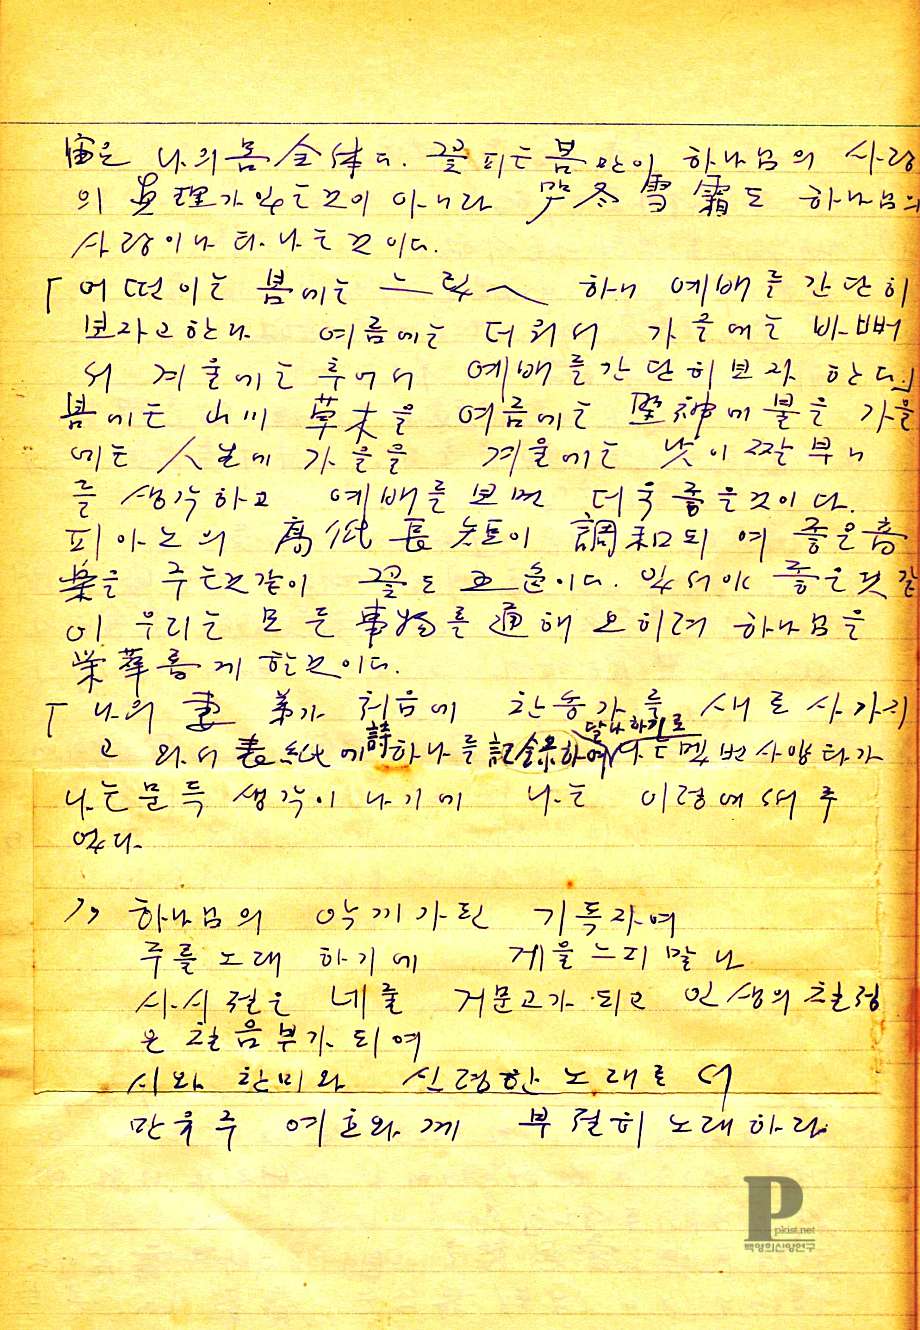 宙은 나의 몸 全体다. 꽃 피는 봄만이 하나님의 사랑
의 眞理가 있는 것이 아니라 嚴冬雪霜도 하나님의
사랑이 나타나는 것이다.
「어떤 이는 봄에는 느릿 하니 예배를 간단히
보자고 한다. 여름에는 더워서 가을에는 바빠
서 겨울에는 추어서 예배를 간단히 보자 한다.」
봄에는 山川草木을 여름에는 聖神에 불을 가을
에는 人生에 가을을 겨울에는 낮이 짧
를 생각하고 예배를 보면 더욱 좋을 것이다.
피아노의 高低長短이 調和되여 좋은 音
樂을 주는 것 같이 꽃도 五色이다. 있서야 좋은 것 같
이 우리는 모든 事物를 通해 오히려 하나님을
榮華롭게 한 것이다.
「나의 妻弟가 처음에 찬송가를 새로 사가지
고 와서 表紙에 詩 하나를 記錄하여 달나하기로
사양타가
나는 문득 생각이 나기에 나는 이렇에 써 주
었다.
〃 하나님의 악기가 된 기독자여
주를 노래 하기에 게을느지 말나
사시절은 네 줄 거문고가 되고 인생의 칠정
은 칠음부가 되여
시와 찬미와 신령한 노래로서
만유주 여호와께 부절히 노래하라
P
pkist.net
백영희신앙연구